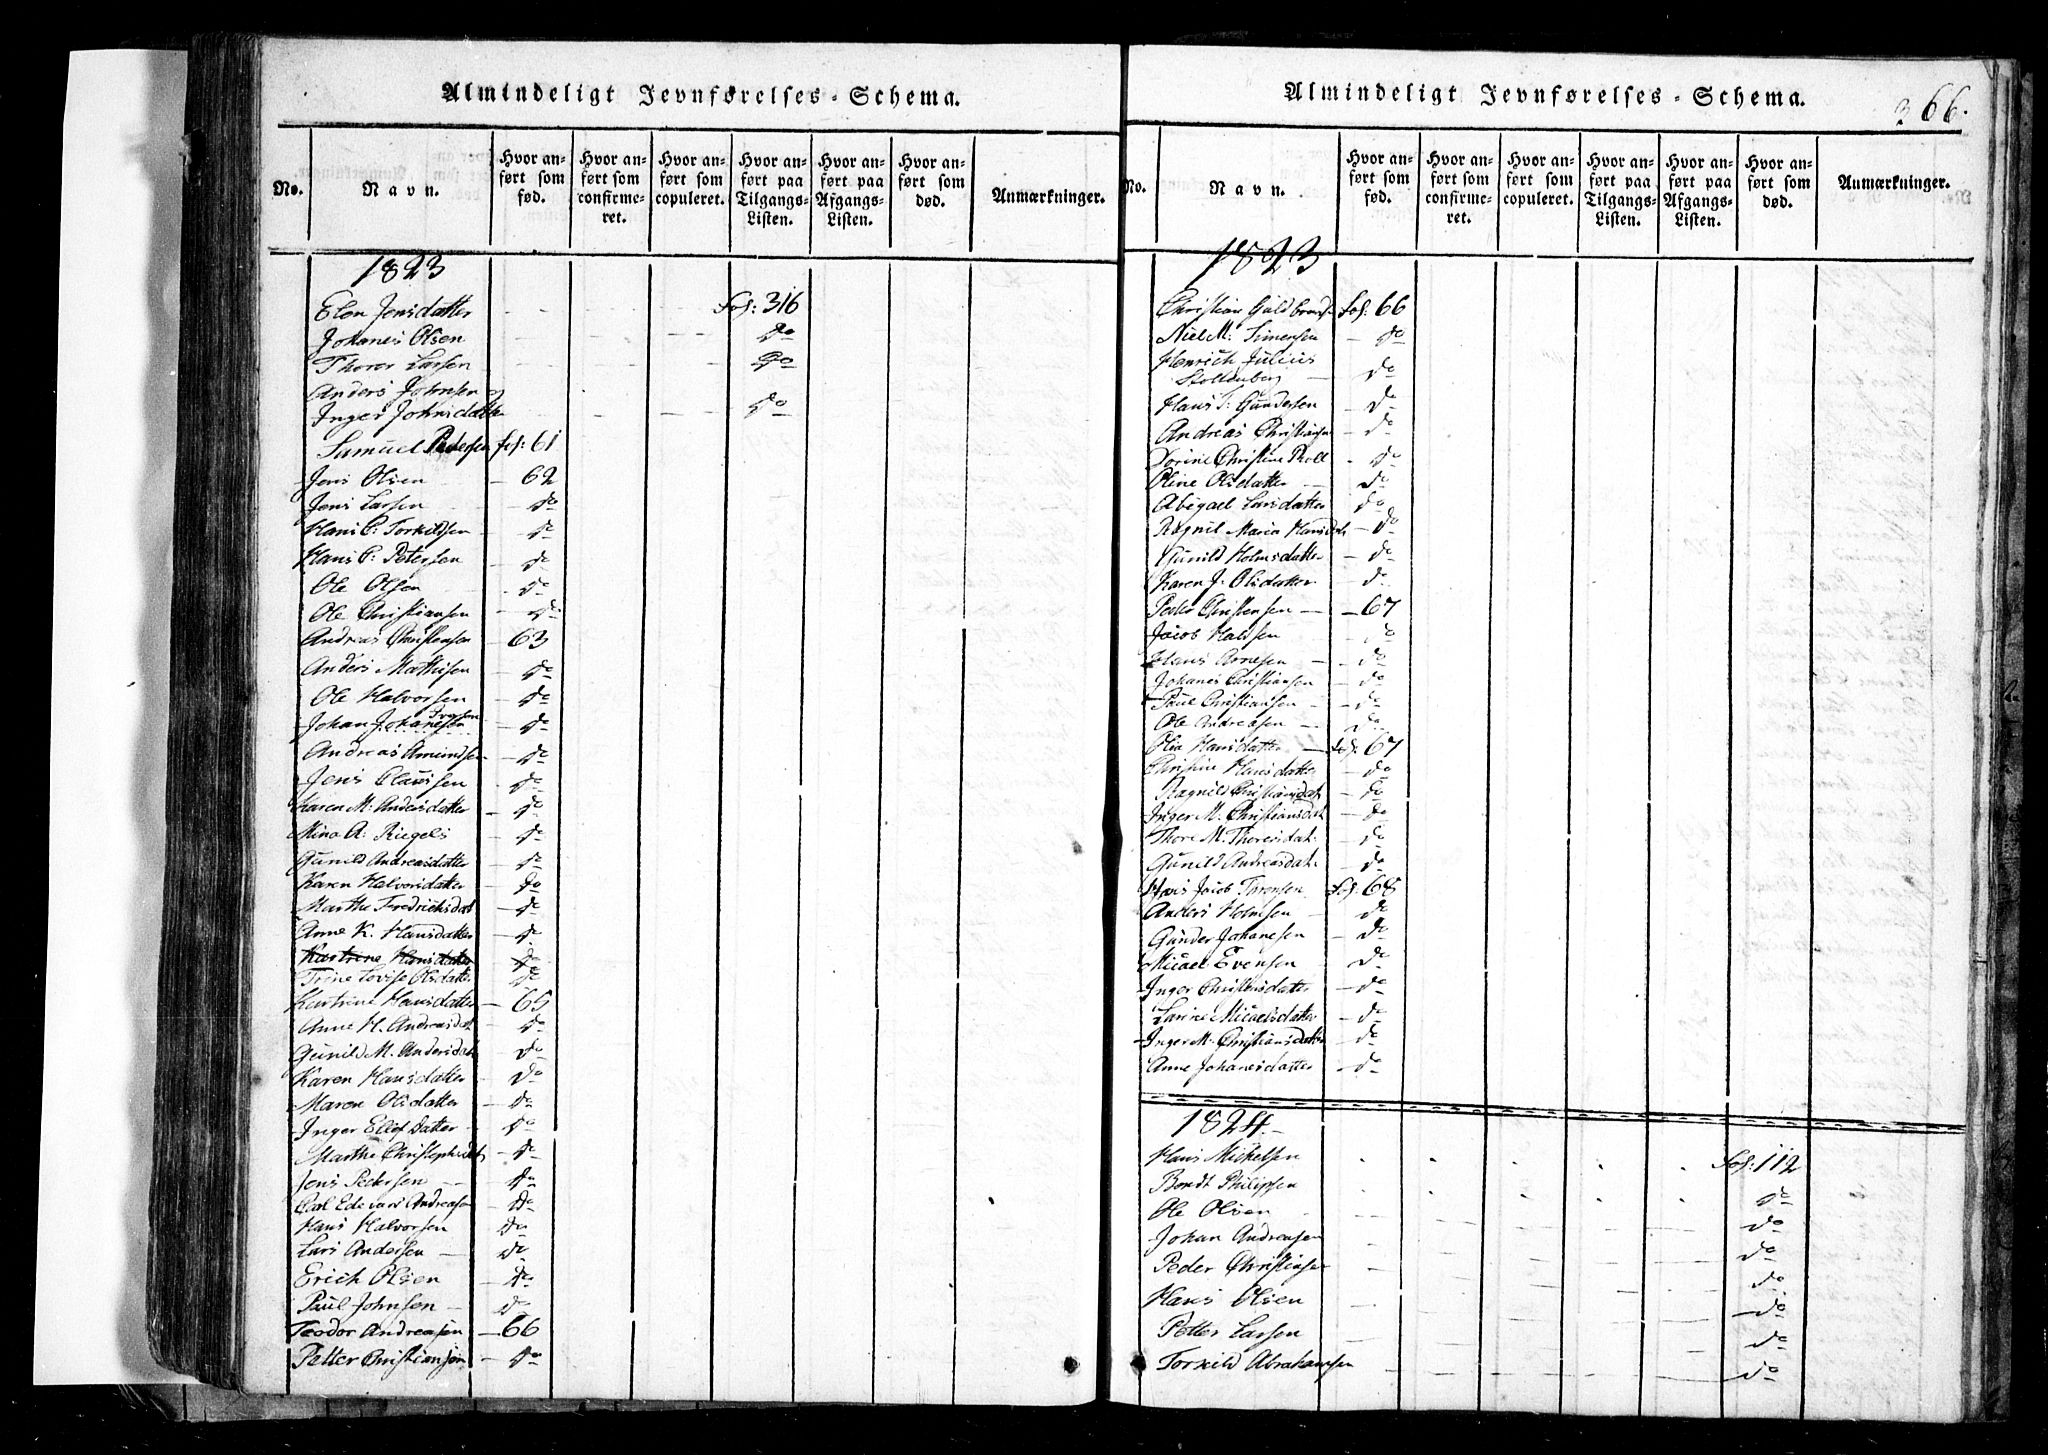 Almindeligt Jevnførelses-Schema.
No.
Navn.
Hvor an-
ført som
fød.
Hvor an-
ført som
confirme-
ret.
Hvor an-
ført som
copuleret.
Hvor an-
ført paa
Tilgangs-
Listen.
Hvor an-
ført paa
Afgangs-
Listen.
Hvor an-
ført som
død.
Anmærkninger.
1823
Elen Jensdatter - - - fol: 316
Johanes Olsen - - do
Thorer Larsen - - - do
Anders Johnsen og
Inger Johnsdatter - - - do
Samuel Pedersen fol: 61
Jens Olsen - 62
Jens Larsen - do
Hans C: Torkildsen - do
Hans C: Petersen - do
Ole Olsen - do
Ole Christiansen - do
Andreas Christensen - 63
Anders Mathisen - do
Ole Halvorsen - do
Johan J. Johanesen - do
Andreas Amundsen - do
Jens Claussen - do
Karen M. Andersdatter - do
Mina A: Riegels - do
Gunild Andreasdatter - do
Karen Halvorsdatter - do
Marthe Fredrichsdat - do
Anne K. Hansdatter - do
Katrine Hansdatter do
Trine Lovise Olsdatter do
Katrine Hansdatter - 65
Anne H. Andreasdat - do
Gunild M. Andersdat - do
Karen Hansdatter - do
Maren Olsdatter - do
Inger Elefdatter - do
Marthe Christophersdat - do
Jens Pedersen - do
Carl Edevard Andreasen - do
Hans Halvorsen - do
Lars Andersen - do
Erich Olsen - do
Paul Johnsen - do
Teodor Andreasen - 66
Petter Christiansen - do
Almindeligt Jevnførelses-Schema.
366.
No.
Navn.
Hvor an-
ført som
fød.
Hvor an-
ført som
confirme-
ret.
Hvor an-
ført som
copuleret.
Hvor an-
ført paa
Tilgangs-
Listen.
Hvor an-
ført paa
Afgangs-
Listen.
Hvor an-
ført som
død.
Anmærkninger.
1823
Christian Guldbrands fol: 66
Niel M: Simensen - do
Henrich Julius
Stoltenberg - do
Hans T: Gundersen - do
Andreas Christiansen - do
Dorine Christine Tholl - do
Oline Olsdatter - do
Abigael Larsdatter do
Ragnil Maria Hansdat - do
Gunild Holmsdatter - do
Karen J. Olsdatter - do
Peder Christensen - 67
Jacob Halsen - do
Hans Arnesen - do
Johanes Christiansen - do
Paul Christiansen - do
Ole Andreasen - do
Olia Hansdatter - fol: 67
Christine Hansdatter - do
Ragnild Christiansdat - do
Inger M. Christiansdat - do
Thore M. Thoresdat. - do
Gunild Andreasdat. - do
Hans Jacob Thorensen fol: 68
Anders Holmsen - do
Gunder Johanesen - do
Micael Evensen - do
Inger Christensdatter - do
Larine Micaelsdatter - do
Inger M. Christiansdatter - do
Anne Johanesdatter - do
1824.
Hans Mickelsen - - - - - fol: 112
Berndt Philipsen do
Ole Olsen do
Johan Andreasen do
Peder Christiansen do
Hans Olsen do
Petter Larsen do
Torkild Abrahamsen do